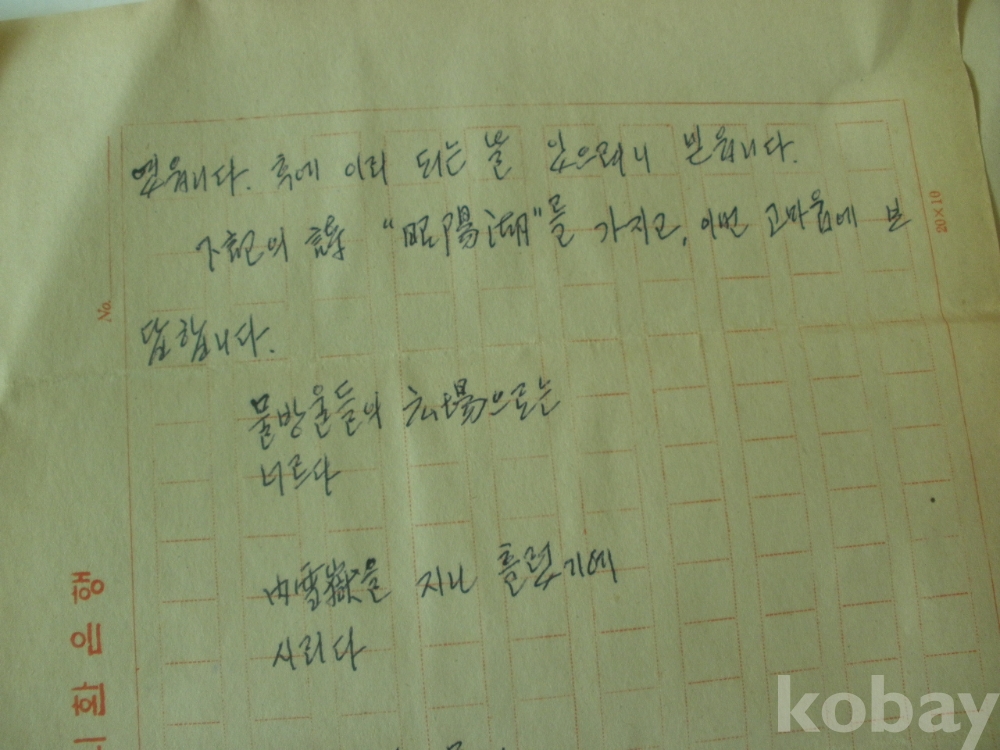 였읍니다. 혹에 이리 되는 날 있으려니 믿읍니다.
下記의 詩 "昭陽湖"를 가지고, 이번 고마움에 보
답합니다.
물방울들의 広場으로는
너르다
內雪嶽을 지나 흘렀기에
시리다
No.
20×10
화은행
kobay